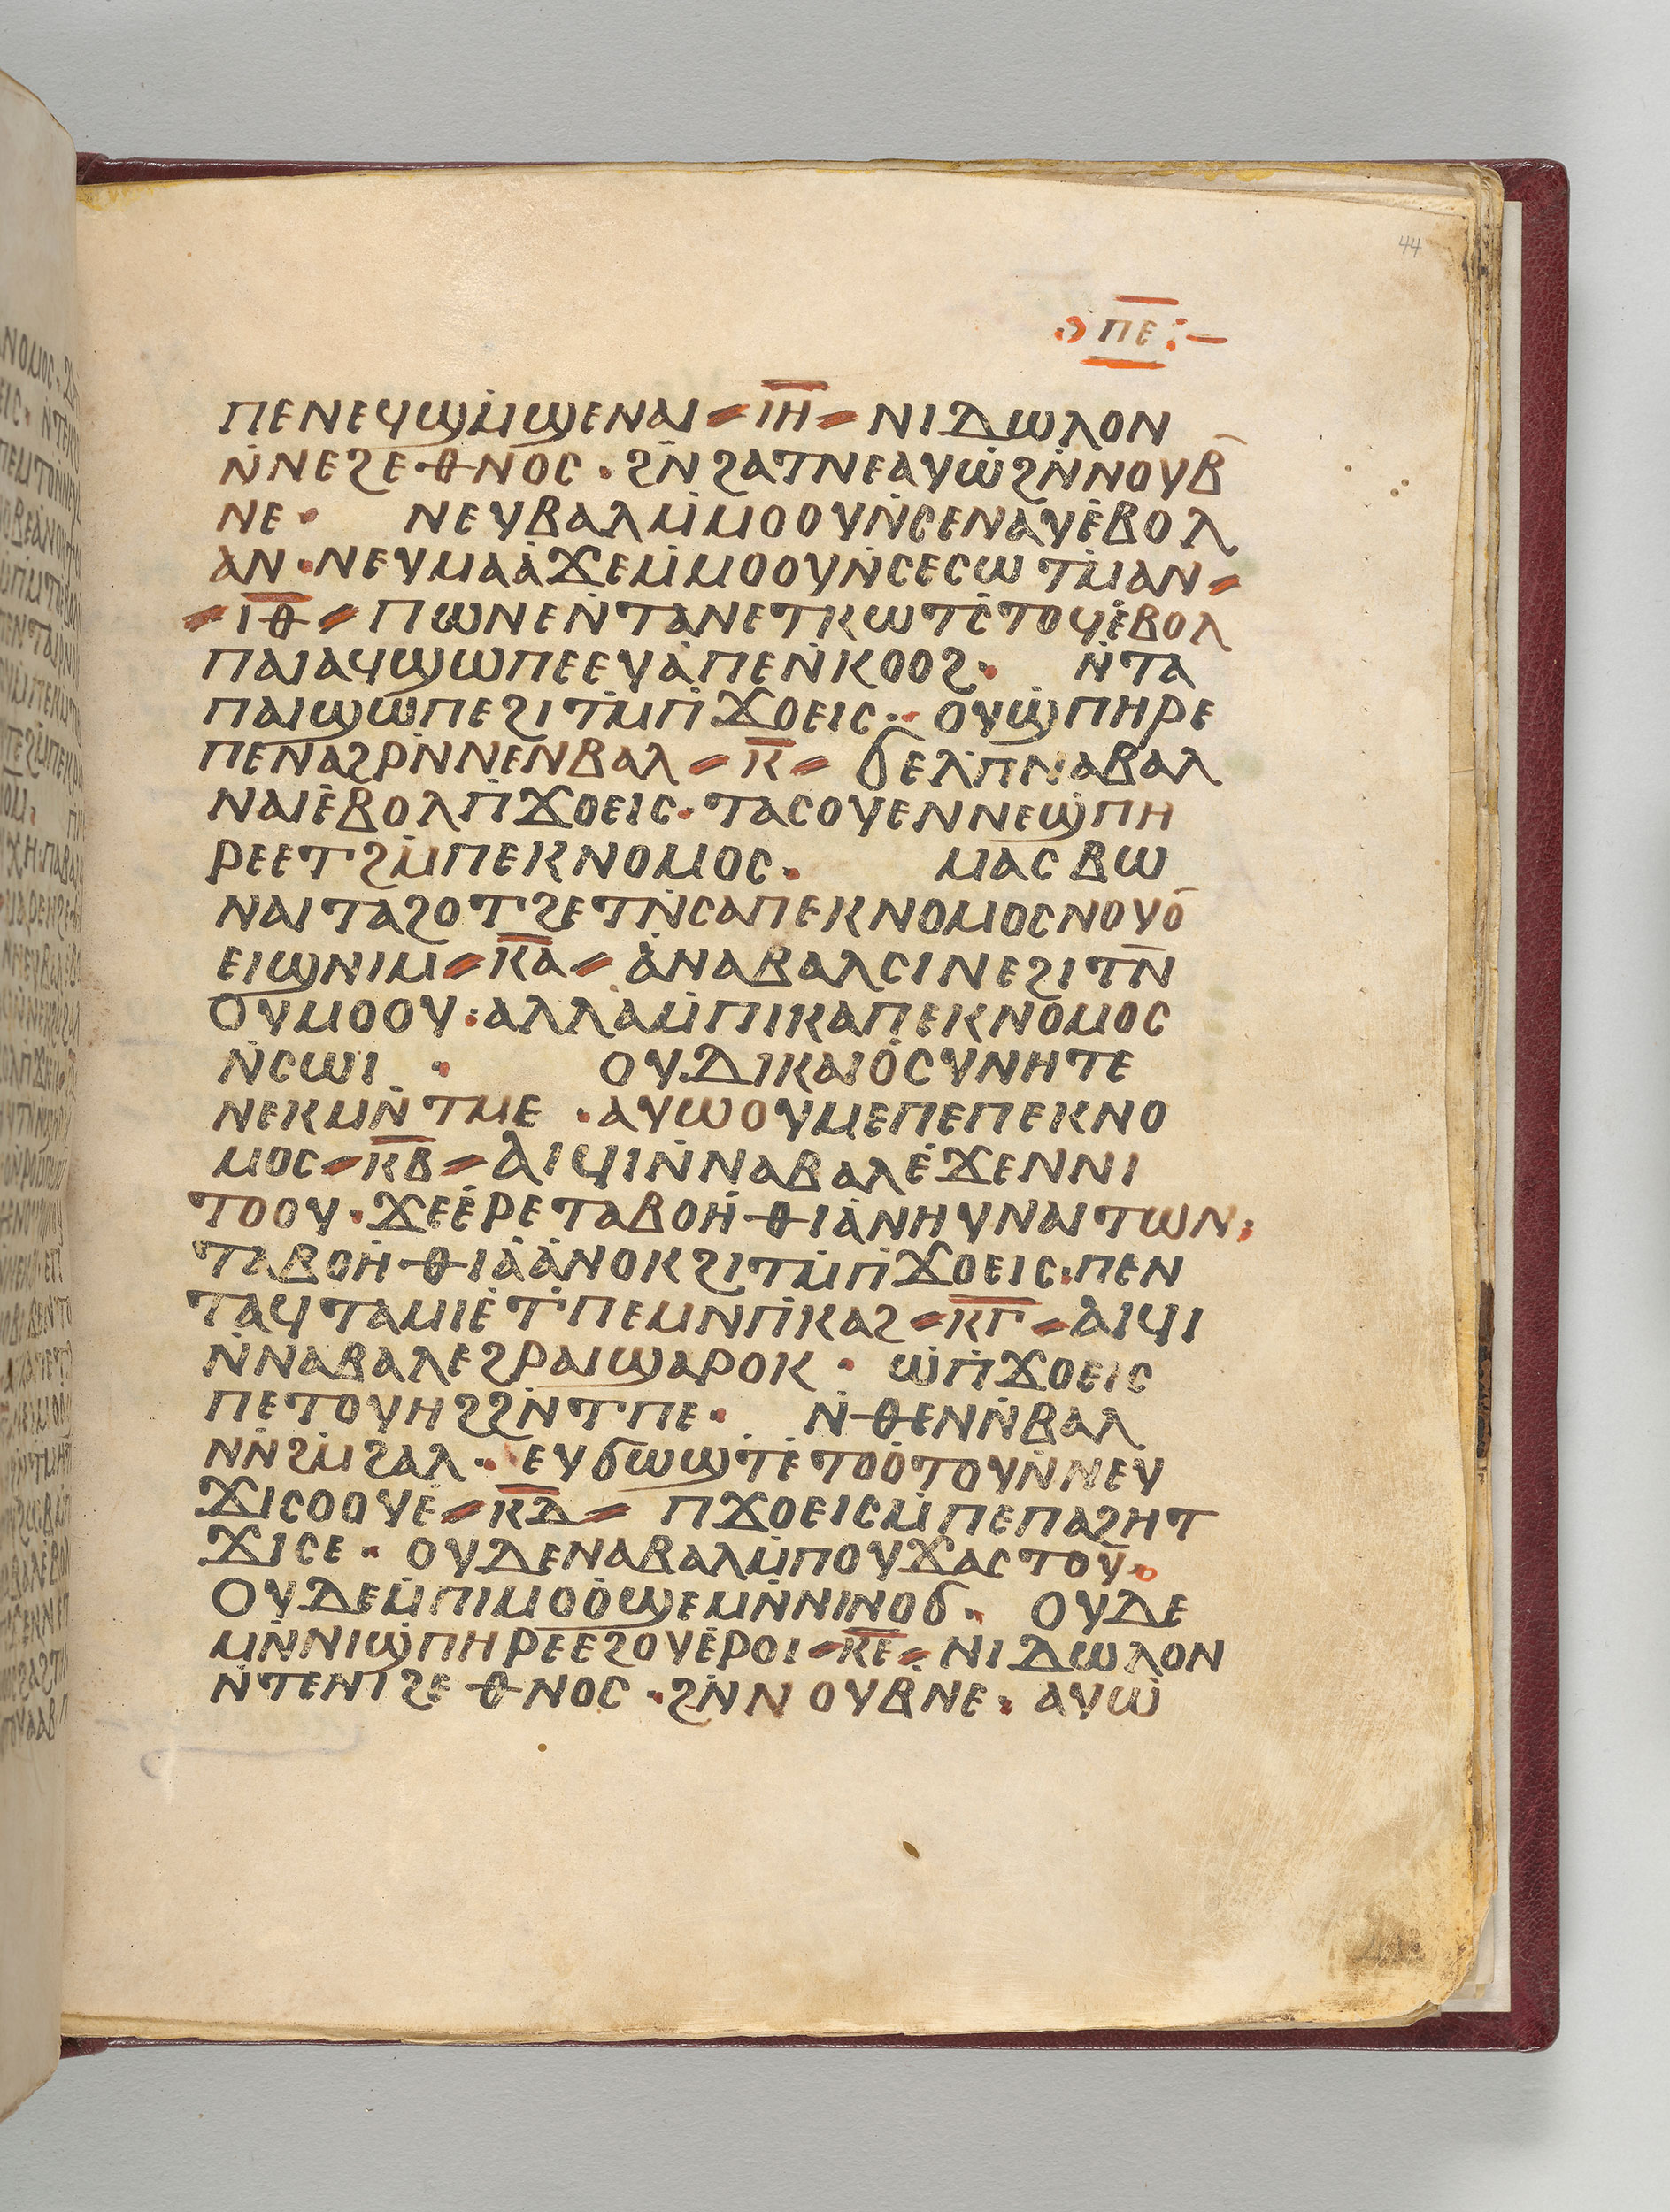 44
ⲡⲉ
ⲡⲉⲛⲉϥϣⲙ̇ϣⲉⲛⲁⲓ ⲓ̅ⲏ̅ ⲛⲓⲇⲱⲗⲟⲛ
ⲛ̇ⲛⲉϩⲉⲑⲛⲟⲥ · ϩⲛ̇ϩⲁⲧⲛⲉⲁⲩⲱ̇ϩⲛ̇ⲛⲟⲩⲃ̅
ⲛⲉ · ⲛⲉⲩⲃⲁⲗⲙ̇ⲙⲟⲟⲩⲛ̇ⲥⲉⲛⲁⲩⲉ̇ⲃⲟⲗ
ⲁ̇ⲛ · ⲛⲉⲩⲙⲁⲁ̇ϫⲉⲙ̇ⲙⲟⲟⲩⲛ̇ⲥⲉⲥⲱⲧⲙ̇ⲁⲛ
ⲓ̅ⲑ̅ ⲡⲱⲛⲉⲛ̇ⲧⲁⲛⲉⲧⲕⲱⲧⲥ̇ⲧⲟϥⲉ̇ⲃⲟⲗ
ⲡⲁⲓⲁϥϣⲱⲡⲉⲉⲩⲁ̇ⲡⲉⲛ̇ⲕⲟⲟϩ · ⲛ̇ⲧⲁ
ⲡⲁⲓϣⲱ̇ⲡⲉϩⲓⲧⲙ̇ⲡ̇ϫⲟⲉⲓⲥ · ⲟⲩϣ̇ⲡⲏⲣⲉ
ⲡⲉⲛⲁϩⲣⲛ̇ⲛⲉⲛⲃⲁⲗ ⲕ̅ ϭⲉⲗⲡ̇ⲛⲁⲃⲁⲗ
ⲛⲁⲓⲉ̇ⲃⲟⲗⲡ̇ϫⲟⲉⲓⲥ · ⲧⲁⲥⲟⲩⲉⲛⲛⲉϣ̇ⲡⲏ
ⲣⲉⲉⲧϩⲙ̇ⲡⲉⲕⲛⲟⲙⲟⲥ · ⲙⲁⲥⲃⲱ
ⲛⲁⲓⲧⲁϩⲟⲧϩⲉⲧⲛ̇ⲥⲁⲡⲉⲕⲛⲟⲙⲟⲥⲛⲟⲩⲟ̅
ⲉⲓϣⲛⲓⲙ ⲕ̅ⲁ̅ ⲁ̇ⲛⲁⲃⲁⲗⲥⲓⲛⲉϩⲓⲧⲛ̅
ⲟⲩⲙⲟⲟⲩ : ⲁⲗⲗⲁⲙ̇ⲡⲓⲕⲁⲡⲉⲕⲛⲟⲙⲟⲥ
ⲛ̇ⲥⲱⲓ · ⲟⲩⲇⲓⲕⲁⲓⲟ̇ⲥⲩⲛⲏⲧⲉ
ⲛⲉⲕⲙⲛ̇ⲧⲙⲉ · ⲁⲩⲱⲟⲩⲙⲉⲡⲉⲡⲉⲕⲛⲟ
ⲙⲟⲥ ⲕ̅ⲃ̅ ⲁⲓϥⲓⲛ̇ⲛⲁⲃⲁⲗⲉ̇ϫⲉⲛⲛⲓ
ⲧⲟⲟⲩ · ϫⲉⲉ̇ⲣⲉⲧⲁⲃⲟⲏ̇ⲑⲓⲁ̇ⲛⲏⲩⲛⲁⲓⲧⲱⲛ ;
ⲧⲁⲃⲟⲏ̇ⲑⲓⲁ̇ⲁ̇ⲛⲟⲕϩⲓⲧⲙ̇ⲡ̇ϫⲟⲉⲓⲥ · ⲡⲉⲛ
ⲧⲁϥⲧⲁⲙⲓⲉ̇ⲧ̇ⲡⲉⲙⲛⲡ̇ⲕⲁϩ ⲕ̅ⲅ̅ ⲁⲓϥⲓ
ⲛ̇ⲛⲁⲃⲁⲗⲉϩⲣⲁⲓϣⲁⲣⲟⲕ · ⲱ̇ⲡ̇ϫⲟⲉⲓⲥ
ⲡⲉⲧⲟⲩⲏϩϩⲛ̇ⲧⲡⲉ · ⲛ̇ⲑⲉⲛⲛ̇ⲃⲁⲗ
ⲛⲛ̇ϩⲙ̇ϩⲁⲗ · ⲉⲩϭⲱϣⲧ̇ⲉ̇ⲧⲟⲟ̇ⲧⲟⲩⲛ̇ⲛⲉⲩ
ϫⲓⲥⲟⲟⲩⲉ̇ ⲕ̅ⲇ̅ ⲡϫⲟⲉⲓⲥⲙ̇ⲡⲉⲡⲁϩⲏⲧ
ϫⲓⲥⲉ · ⲟⲩⲇⲉⲛⲁⲃⲁⲗⲙ̇ⲡⲟⲩϫⲁⲥⲧⲟⲩ ·
ⲟⲩⲇⲉⲙ̇ⲡⲓⲙⲟⲟ̇ϣⲉⲙⲛ̇ⲛⲓⲛⲟϭ · ⲟⲩⲇⲉ
ⲙⲛ̇ⲛⲓϣ̇ⲡⲏⲣⲉⲉϩⲟⲩⲉ̇ⲣⲟⲓ ⲕ̅ⲉ̅ ⲛⲓⲇⲱⲗⲟⲛ
ⲛ̇ⲧⲉⲛⲓϩⲉⲑⲛⲟⲥ · ϩⲛ̇ⲛⲟⲩⲃ̇ⲛⲉ · ⲁⲩⲱ̇